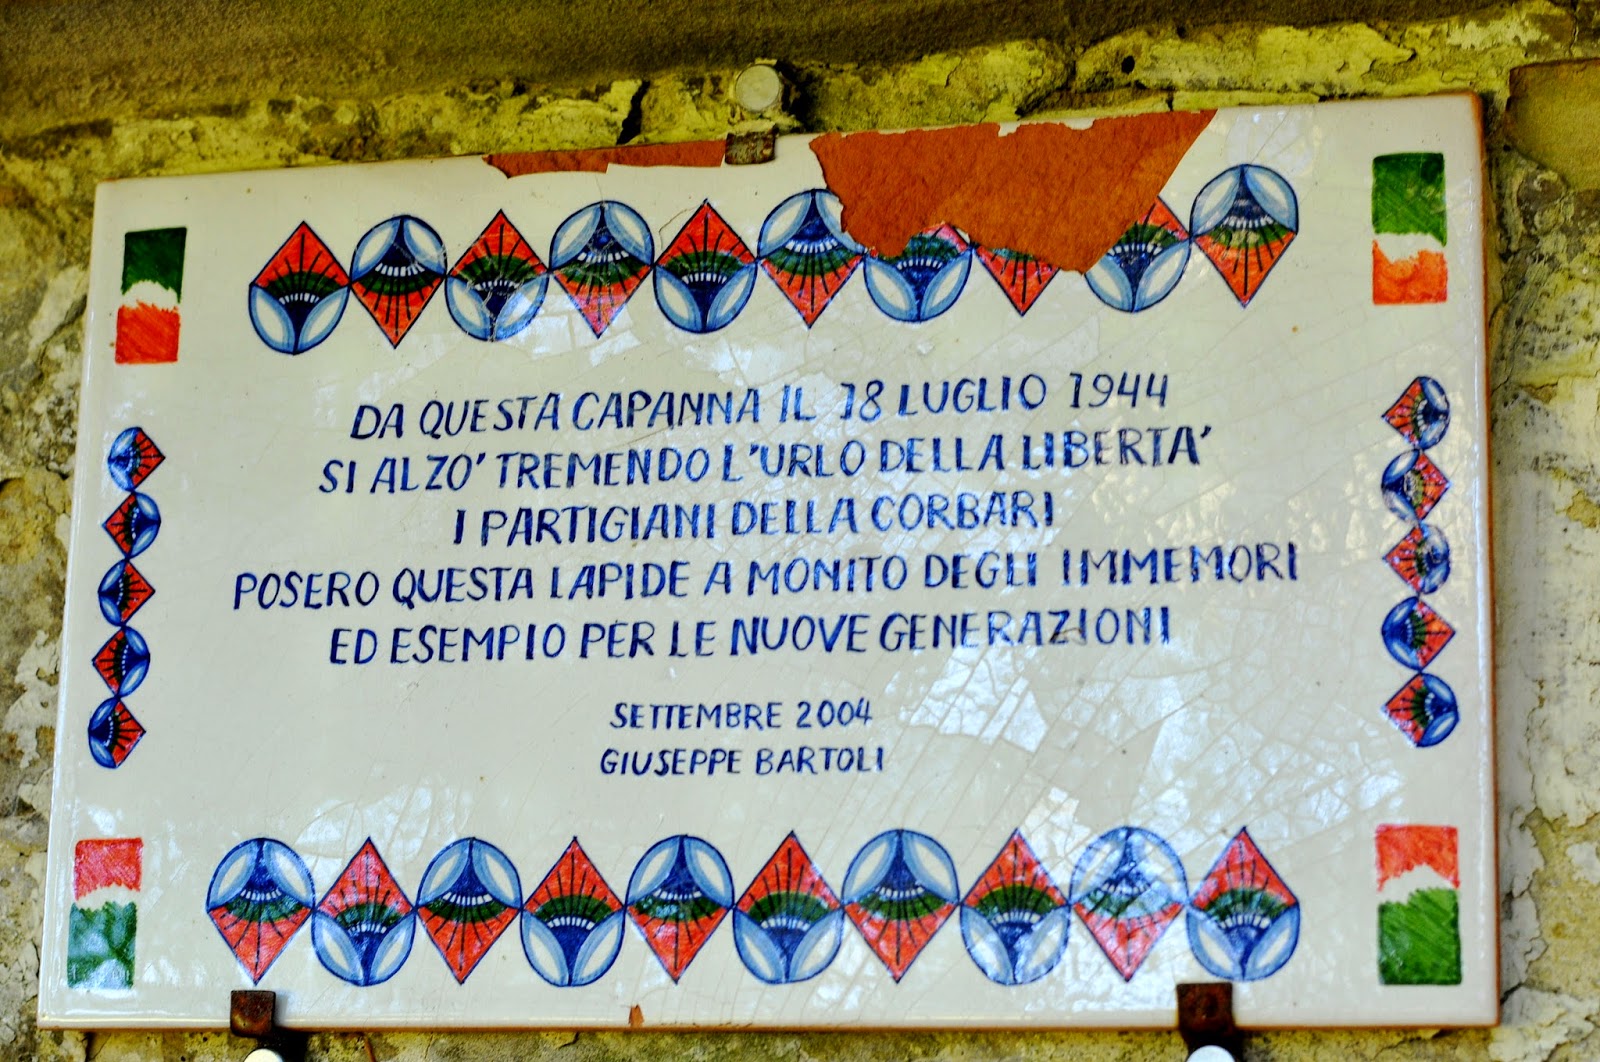 DA QUESTA CAPANNA IL 18 LUGLIO 1944
SI ALZO' TREMENDO L'URLO DELLA LIBERTA'
I PARTIGIANI DELLA CORBARI
POSERO QUESTA LAPIDE A MONITO DEGLI IMMEMORI
ED ESEMPIO PER LE NUOVE GENERAZIONI
SETTEMBRE 2004
GIUSEPPE BARTOLI